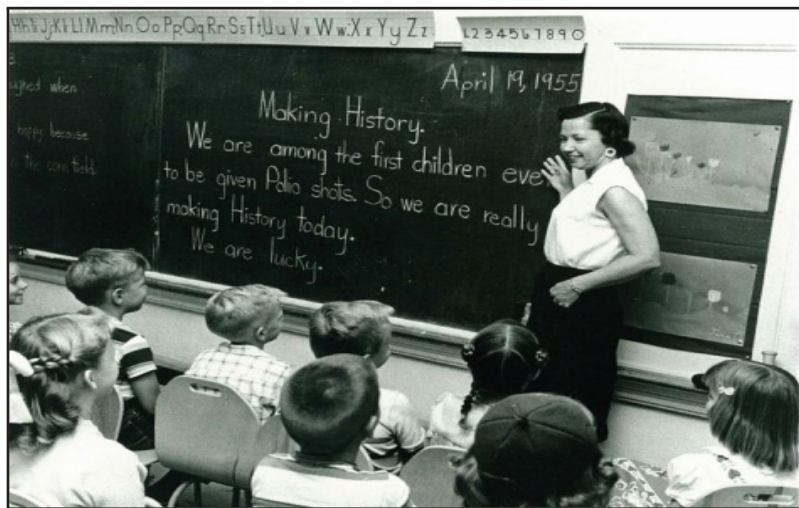 Hh Ii Jj Kk Ll Mm Nn Oo Pp Qq Rr Ss Tt Uu Vv Ww Xx Yy Zz
1234567890
April 19, 1955
Making History.
We are among the first children eve
to be given Polio shots. So we are really
making History today.
We are lucky.
when
happy because
the corn field.